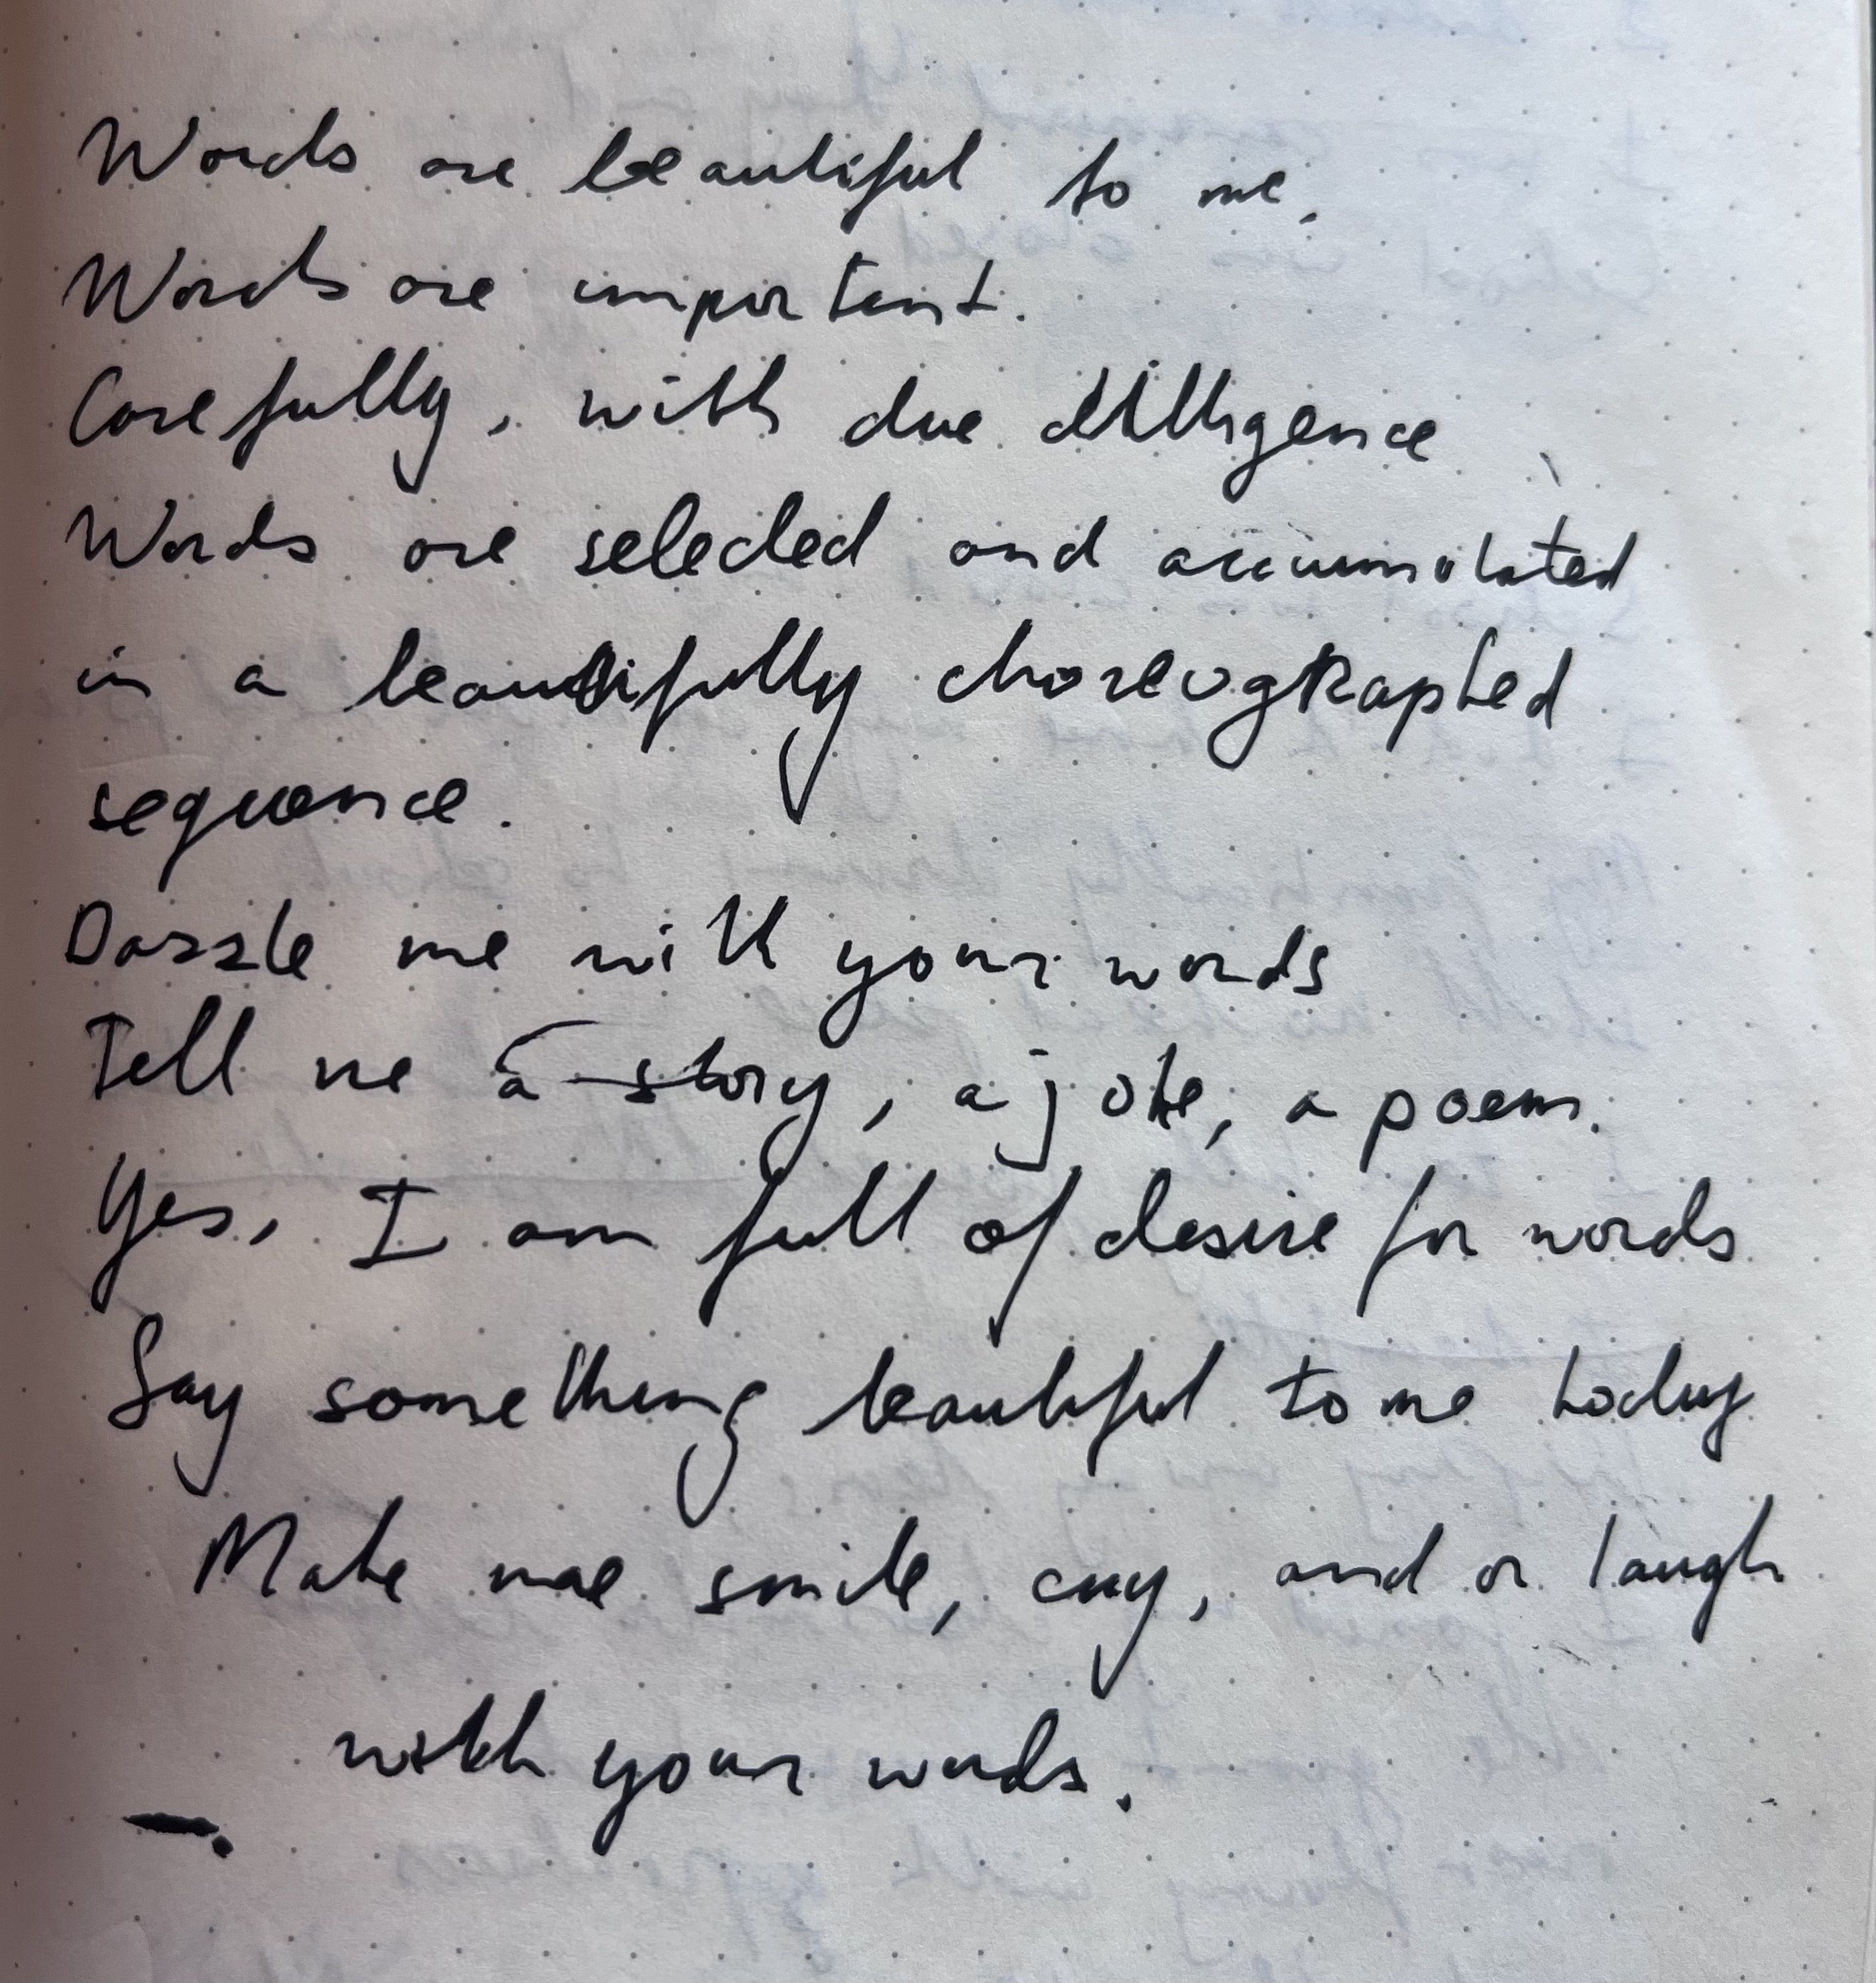 Words are beautiful to me.
Words are important.
Carefully, with due dilligence
Words are selected and accumulated
in a beautifully choreographed
sequence.
Dazzle me with your words
Tell me a story, a joke, a poem.
Yes, I am full of desire for words
Say something beautiful to me today
Make me smile, cry, and or laugh
with your words.